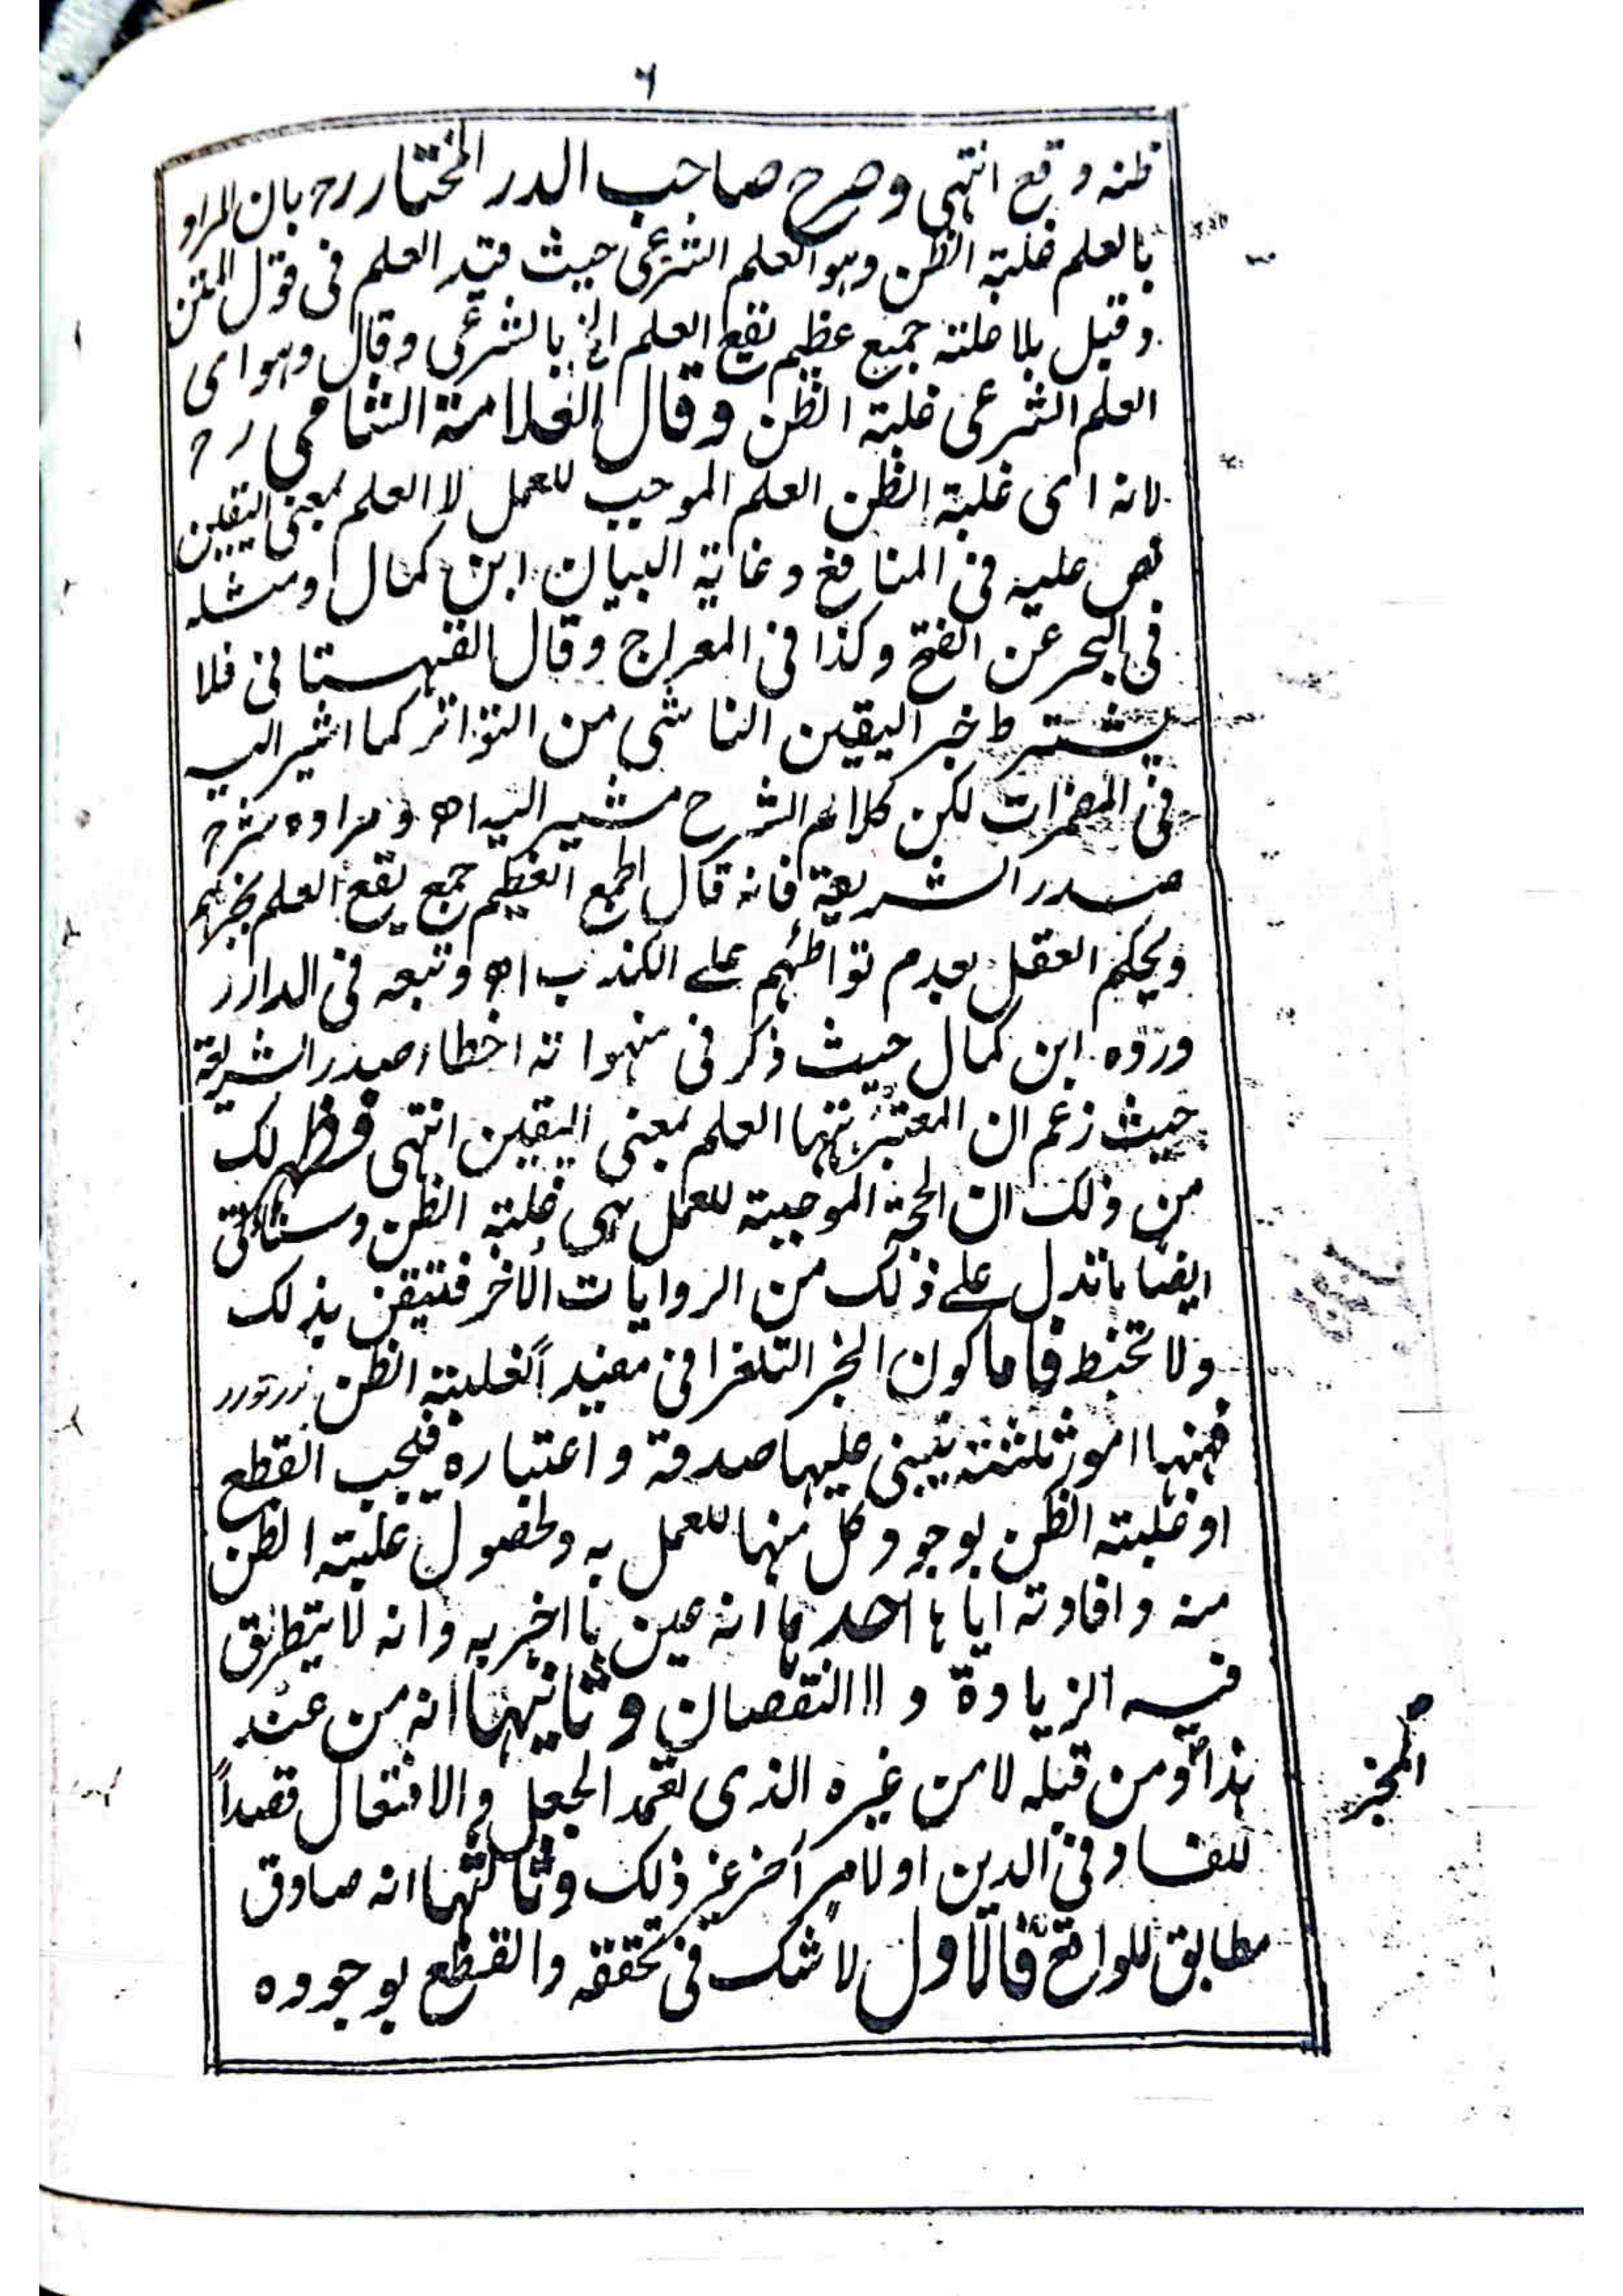 ٦
ظنه وقع انتهى وصرح صاحب الدر المختار رح بان المراد
بالعلم غلبة الظن وهو العلم الشرعى حيث قيد العلم فى قول المتن
وقيل بلا علة جمع عظيم يقع العلم الخ بالشرعى وقال وهو اى
العلم الشرعى غلبة الظن وقال العلامة الشامى رح
لانه اى غلبة الظن العلم الموجب للعمل لا العلم بمعنى اليقين
نص عليه فى المنافع وغاية البيان ابن كمال ومثله
فى البحر عن الفتح وكذا فى المعراج وقال القهستانى فلا
يشترط خبر اليقين الناشى من التواتر كما اشير اليه
فى المضمرات لكن كلام الشرح مشير اليه اه ومراده شرح
صدر الشريعة فانه قال الجمع العظيم جمع يقع العلم بخبرهم
ويحكم العقل بعدم تواطئهم على الكذب اه وتبعه فى الدرر
ورده ابن كمال حيث ذكر فى منهواته اخطاء صدر الشريعة
حيث زعم ان المعتبر ههنا العلم بمعنى اليقين انتهى فظهر لك
من ذلك ان الحجة الموجبة للعمل هى غلبة الظن وستأتى
ايضا ما تدل على ذلك من الروايات الأخر فتيقن بذلك
ولا تخبط فاما كون الخبر التلغرافى مفيداً لغلبة الظن
فههنا امور ثلثة يبتنى عليها صدقه واعتباره فيجب القطع
او غلبة الظن بوجود كل منها للعمل به ولحصول غلبة الظن
منه وافادته اياها احدها انه عين ما اخبر به وانه لا يتطرق
فيه الزيادة و النقصان وثانيها انه من عند
هذا ومن قبله لا من غيره الذى تعمد الجعل والافتعال قصداً
للفساد فى الدين او لامر آخر غير ذلك وثالثها انه صادق
مطابق للواقع فالاول لا شك فى تحققه والقطع بوجوده
المخبر